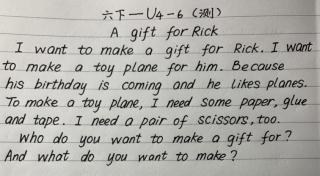 六下—U4-6(测)
A gift for Rick
I want to make a gift for Rick. I want
to make a toy plane for him. Because
his birthday is coming and he likes planes.
To make a toy plane, I need some paper, glue
and tape. I need a pair of scissors, too.
Who do you want to make a gift for?
And what do you want to make?